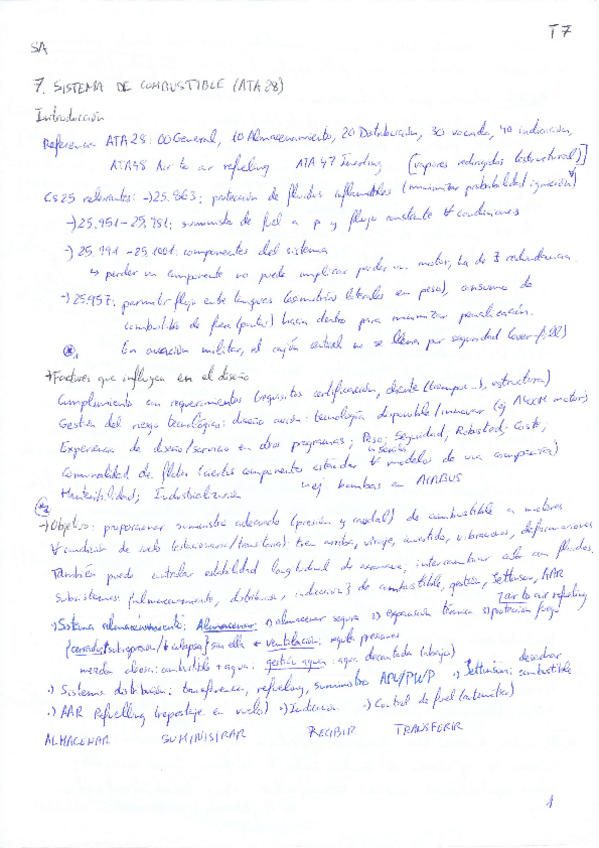 T7
SA
7. SISTEMA DE COMBUSTIBLE (ATA 28)
Introducción
Referencia ATA28: 00 General, 10 Almacenamiento, 20 Distribución, 30 vaciado, 40 indicación,
ATA48 Air to air refueling ATA 47 Inerting [vapores (estructural)]
CS25 relevantes: →) 25.863: protección de fluidos inflamables (minimizar probabilidad ignición)
→) 25.951-25.981: suministro de fuel a p y flujo constante ∀ condiciones
→) 25.991-25.1001: componentes del sistema
↳ perder un componente no puede implicar perder un motor, ha de ∃ redundancia.
→) 25.957: permitir flujo entre tanques (asimetrías laterales en peso), consumo de
combustible de fuera (puntas) hacia dentro para minimizar penalización.
En aviación militar, el cajón central no se llena por seguridad (over-fill)
→ Factores que influyen en el diseño
Cumplimiento con requerimientos (requisitos certificación, cliente (tiempos...), estructura)
Gestión del riesgo tecnológico: diseño avión: tecnología disponible/innovar (ej A400M motor)
Experiencia de diseño/servicio en otros programas; Peso; Seguridad, Robustez; Coste;
Comunalidad de flotas (ciertos componentes estándar ∀ modelos de una compañía)
Mantenibilidad; Industrialización ej bombas en AIRBUS
→) Objetivo: proporcionar suministro adecuado (presión y caudal) de combustible a motores
∀ condición de vuelo (estacionario/transitorio): tren arriba, viraje, invertido, vibraciones, deformaciones
También puede controlar estabilidad longitudinal de aeronave, intercambiar calor con fluidos.
Subsistemas: {almacenamiento, distribución, indicación} de combustible, gestión, Jettison, AAR
[air to air refueling
→) Sistema almacenamiento: Almacenar: →) almacenar seguro →) expansión térmica →) protección fuego
ventilación: regula presiones
mezcla : combustible + agua: gestión agua: agua decantada (abajo)
→) Sistema distribución: transferencia, refueling, suministro APU/PWP →) Jettinson: desechar combustible
→) AAR Refuelling (repostaje en vuelo) →) Indicación →) Control de fuel (automático)
ALMACENAR SUMINISTRAR RECIBIR TRANSFERIR
1